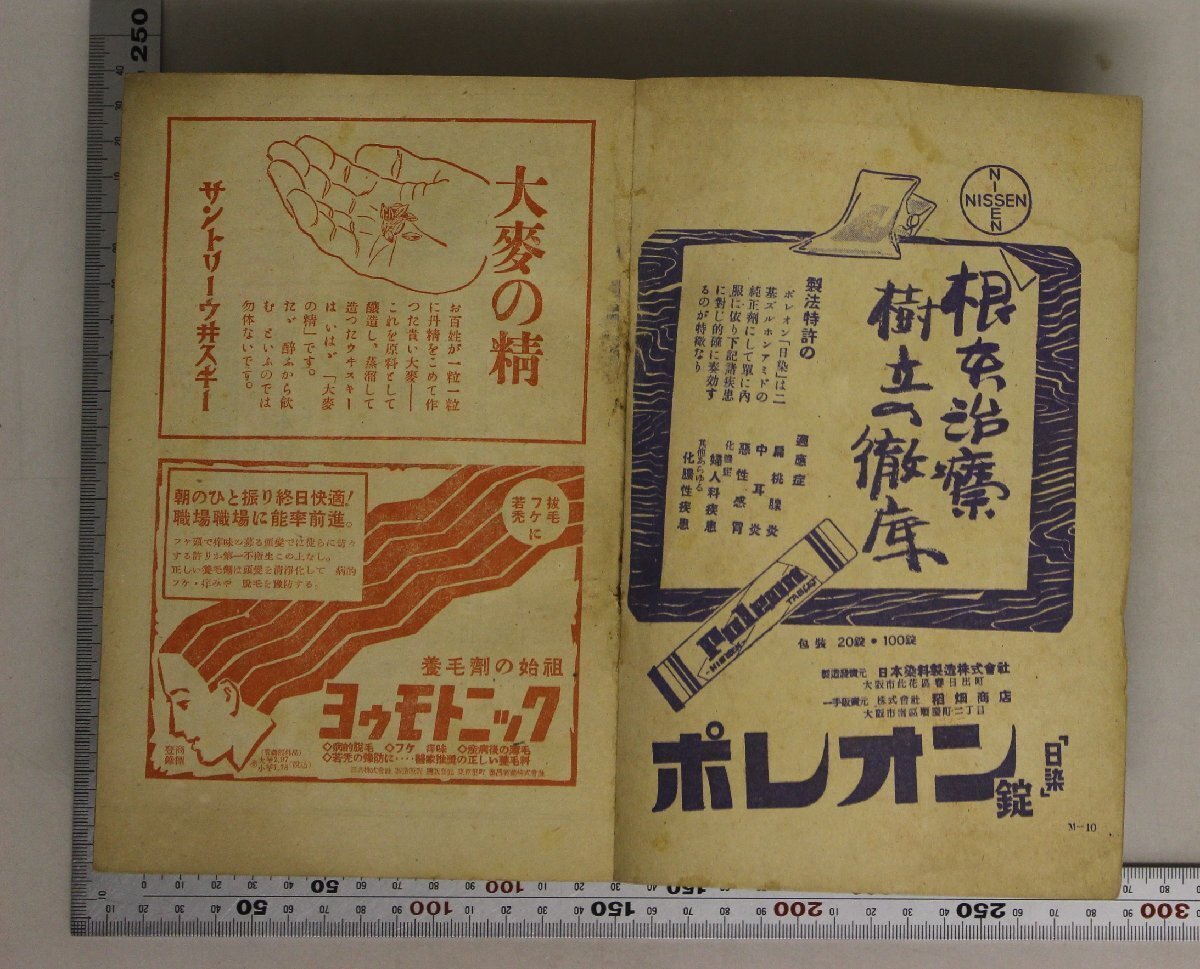 大麥の精
お百姓が一粒一粒
に丹精をこめて作
つた貴い大麥――
これを原料として
釀造し、蒸溜して
造つたウヰスキー
は いはゞ「大麥
の精」です。
たゞ 醉ふから飮
む といふのでは
勿体ないです。
サントリーウ井スキー
朝のひと振り終日快適!
職場職場に能率前進。
フケ頭で痒味の募る頭髮では徒らに苛々
する許りか第一不衞生この上なし。
正しい養毛劑は頭髮を淸淨化して 病的
フケ・痒みや 脫毛を豫防する。
拔毛
フケに
若禿
養毛劑の始祖
ヨウモトニック
◇病的脫毛 ◇フケ 痒味 ◇癒病後の薄毛
◇若禿の豫防に‥‥醫家推奬の正しい養毛料
商標
登錄
大瓶2.97
小瓶1.78
NISSEN
NISSEN
根本治療
樹立の徹底
製法特許の
ポレオン「日染」は二
基ズルホンアミドの
純正劑にして單に內
服に依り下記諸疾患
に對し的確に奏効す
るのが特徵なり
適應症
扁桃腺炎
中耳炎
惡性感冒
化膿症
婦人科疾患
其他あらゆる
化膿性疾患
Poleon
TABLET
NISSEN
包裝 20錠・100錠
製造發賣元 日本染料製造株式會社
大阪市此花區春日出町
一手販賣元 株式會社 稻畑商店
大阪市南區順慶町二丁目
ポレオン錠「日染」
M—10
250
50
100
150
200
250
300